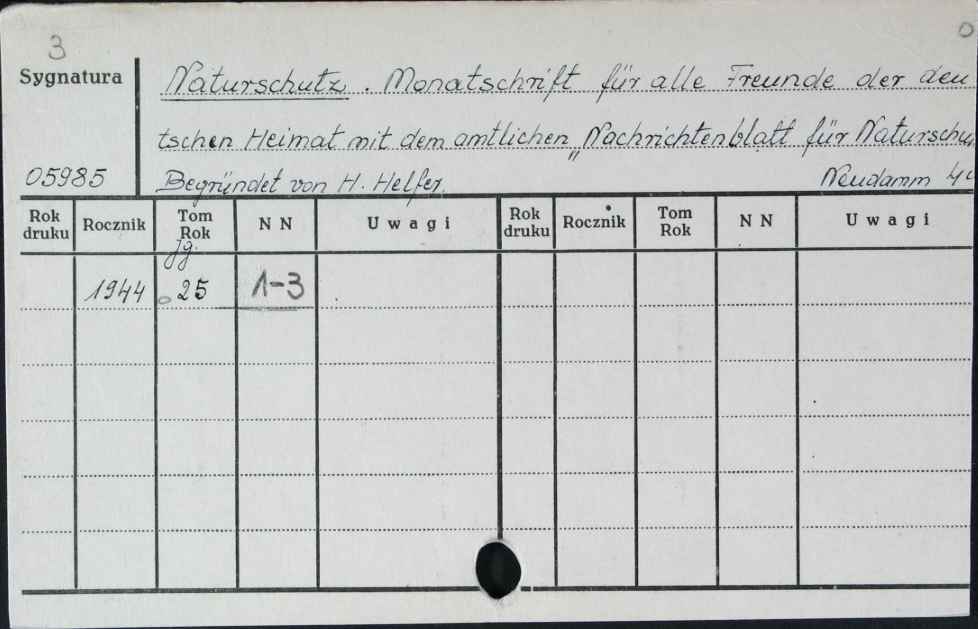 3
Sygnatura
Naturschutz. Monatschrift für alle Freunde der deu
tschen Heimat mit dem amtlichen „Nachrichtenblatt für Naturschu
05985
Begründet von H. Helfer.
Neudamm
Rok druku Rocznik Tom Rok N N Uwagi Rok druku Rocznik Tom Rok N N Uwagi
Jg.
1944 25 1-3